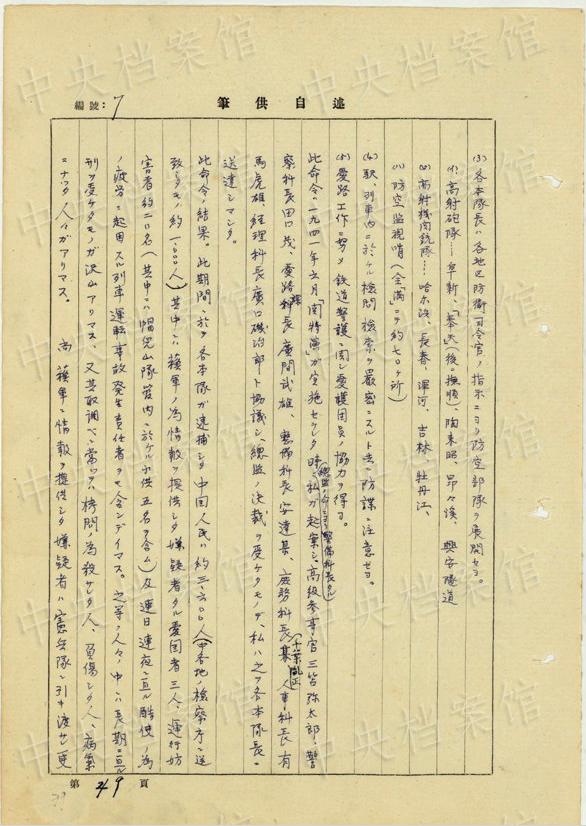 述自供筆
編號：7
(3) 各本隊長ハ各地区防衛司令官ノ指示ニヨリ防空部隊ヲ展開セヨ。
(イ) 高射砲隊……阜新、「奉天」(後ニ撫順)、陶末昭、昂々溪、興安隧道
(ロ) 高射機関銃隊……哈尔浜、長春、渾河、吉林、牡丹江、
(ハ) 防空監視哨(全満ニ約七〇ヶ所)
(4) 駅、列車内ニ於ケル検問検索ヲ厳密ニスルト共ニ防諜ニ注意セヨ。
(5) 愛路工作ニ努メ鉄道警護ニ関シ愛護団員ノ協力ヲ得ヨ。
此命令ハ一九四一年六月「関特演」ガ実施セラレタ時ニ私ガ起案シ、高級参事官三笘弥太郎、警
務科長田口茂、愛路科長廣間武雄、警備科長安達某、庶務科長某(千葉胤正)人事科長有
馬虎雄経理科長廣口磯治郎ト協議シ、総監ノ決裁ヲ受ケタモノデ、私ハ之ヲ各本隊長ニ
送達シマシタ。
此命令ノ結果。此期間ニ於テ各本隊ガ逮捕シタ中国人民ハ約三、六〇〇人
致シタモノ約一、〇〇〇人)其中ニハ蘇軍ノ為情報ヲ提供シタ嫌疑者タル愛国者三人、運行妨
害者約二〇名(其中ニハ帽兒山隊管内ニ於ケル小供五名ヲ含ム)及連日連夜ニ亘ル酷使ノ為
ノ疲労ニ起因スル列車運転事故発生責任者ヲモ含ンデイマス。之等ノ人々ノ中ニハ長期ニ亘ル
刑ヲ受ケタモノガ沢山アリマス、又其取調ベニ當ツテハ拷問ノ為殺サレタ人、負傷シタ人、病気
ニナツタ人々ガアリマス。　尚蘇軍ニ情報ヲ提供シタ嫌疑者ハ憲兵隊ニ引キ渡サレ更
第49頁
中央档案馆